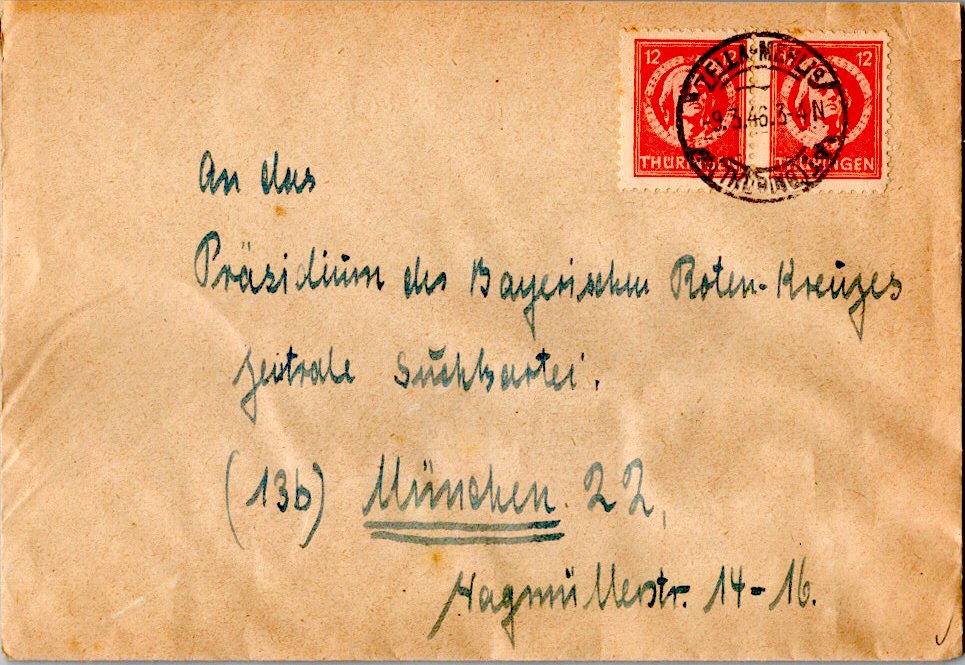 12 12
THÜRINGEN THÜRINGEN
ZELLA-MEHLIS
29.3.46.3-4N
(THÜRINGEN)
An das
Präsidium des Bayerischen Roten-Kreuzes
Zentrale Suchkartei.
(13b) München 22,
Wagmüllerstr. 14-16.